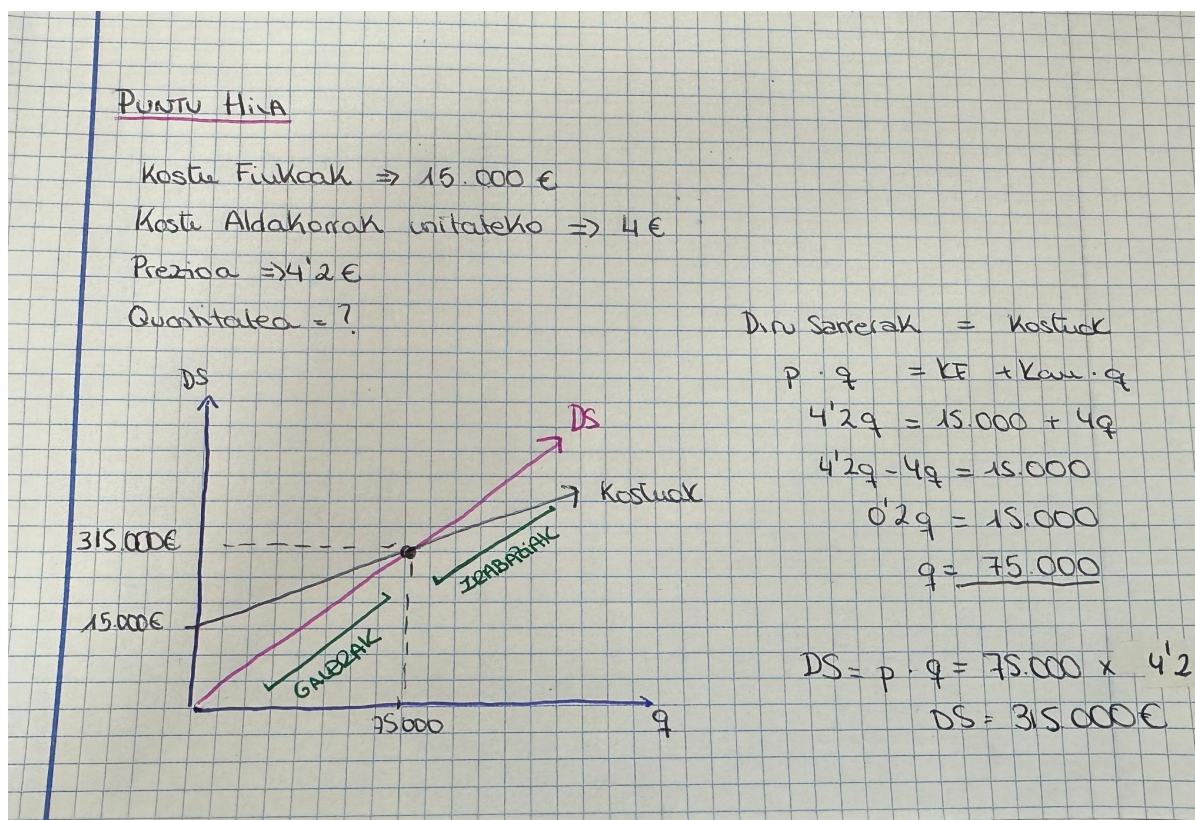 PUNTU HILA
Kostu Finkoak => 15.000 €
Kostu Aldakorrak unitateko => 4 €
Prezioa => 4'2 €
Quantitatea = ?
DS
DS
Kostuak
315.000€
15.000€
GALERAK
IRABAZIAK
75000
q
Diru Sarrerak = Kostuak
p · q = KF + Kau · q
4'2q = 15.000 + 4q
4'2q - 4q = 15.000
0'2q = 15.000
q = 75.000
DS = p · q = 75.000 x 4'2
DS = 315.000€